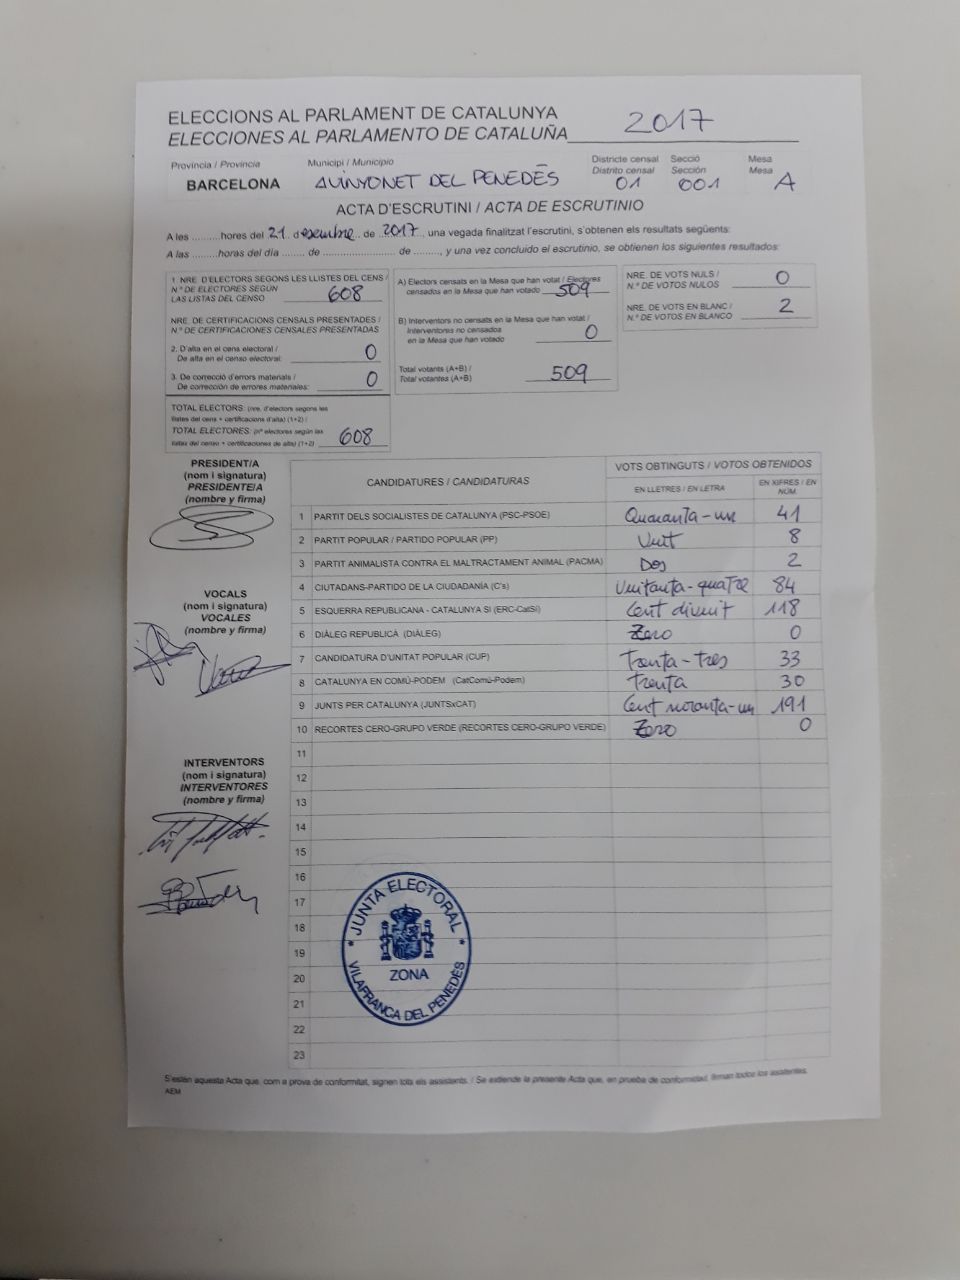 ELECCIONS AL PARLAMENT DE CATALUNYA
ELECCIONES AL PARLAMENTO DE CATALUÑA 2017
Província / Provincia
BARCELONA
Municipi / Municipio
AVINYONET DEL PENEDÈS
Districte censal
Distrito censal
01
Secció
Sección
001
Mesa
Mesa
A
ACTA D'ESCRUTINI / ACTA DE ESCRUTINIO
A les ..........hores del 21 desembre de 2017, una vegada finalitzat l'escrutini, s'obtenen els resultats següents:
A las .........horas del día ........ de ........................ de ........, y una vez concluido el escrutinio, se obtienen los siguientes resultados:
1. NRE. D'ELECTORS SEGONS LES LLISTES DEL CENS /
N.º DE ELECTORES SEGÚN
LAS LISTAS DEL CENSO 608
NRE. DE CERTIFICACIONS CENSALS PRESENTADES /
N.º DE CERTIFICACIONES CENSALES PRESENTADAS
2. D'alta en el cens electoral /
De alta en el censo electoral: 0
3. De correcció d'errors materials /
De corrección de errores materiales: 0
TOTAL ELECTORS: (nre. d'electors segons les
llistes del cens + certificacions d'alta) (1+2) /
TOTAL ELECTORES: (nº electores según las
listas del censo + certificaciones de alta) (1+2) 608
A) Electors censats en la Mesa que han votat / Electores
censados en la Mesa que han votado 509
B) Interventors no censats en la Mesa que han votat /
Interventores no censados
en la Mesa que han votado 0
Total votants (A+B) /
Total votantes (A+B) 509
NRE. DE VOTS NULS /
N.º DE VOTOS NULOS 0
NRE. DE VOTS EN BLANC /
N.º DE VOTOS EN BLANCO 2
PRESIDENT/A
(nom i signatura)
PRESIDENTE/A
(nombre y firma)
VOCALS
(nom i signatura)
VOCALES
(nombre y firma)
INTERVENTORS
(nom i signatura)
INTERVENTORES
(nombre y firma)
CANDIDATURES / CANDIDATURAS
VOTS OBTINGUTS / VOTOS OBTENIDOS
EN LLETRES / EN LETRA
EN XIFRES / EN NÚM.
1 PARTIT DELS SOCIALISTES DE CATALUNYA (PSC-PSOE) Quaranta-un 41
2 PARTIT POPULAR / PARTIDO POPULAR (PP) Vuit 8
3 PARTIT ANIMALISTA CONTRA EL MALTRACTAMENT ANIMAL (PACMA) Dos 2
4 CIUTADANS-PARTIDO DE LA CIUDADANÍA (C's) Vuitanta-quatre 84
5 ESQUERRA REPUBLICANA - CATALUNYA SÍ (ERC-CatSí) Cent divuit 118
6 DIÀLEG REPUBLICÀ (DIÀLEG) Zero 0
7 CANDIDATURA D'UNITAT POPULAR (CUP) Trenta-tres 33
8 CATALUNYA EN COMÚ-PODEM (CatComú-Podem) Trenta 30
9 JUNTS PER CATALUNYA (JUNTSxCAT) Cent noranta-un 191
10 RECORTES CERO-GRUPO VERDE (RECORTES CERO-GRUPO VERDE) Zero 0
11
12
13
14
15
16
17
18
19
20
21
22
23
JUNTA ELECTORAL
ZONA
VILAFRANCA DEL PENEDÈS
S'estén aquesta Acta que, com a prova de conformitat, signen tots els assistents. / Se extiende la presente Acta que, en prueba de conformidad, firman todos los asistentes.
AEM